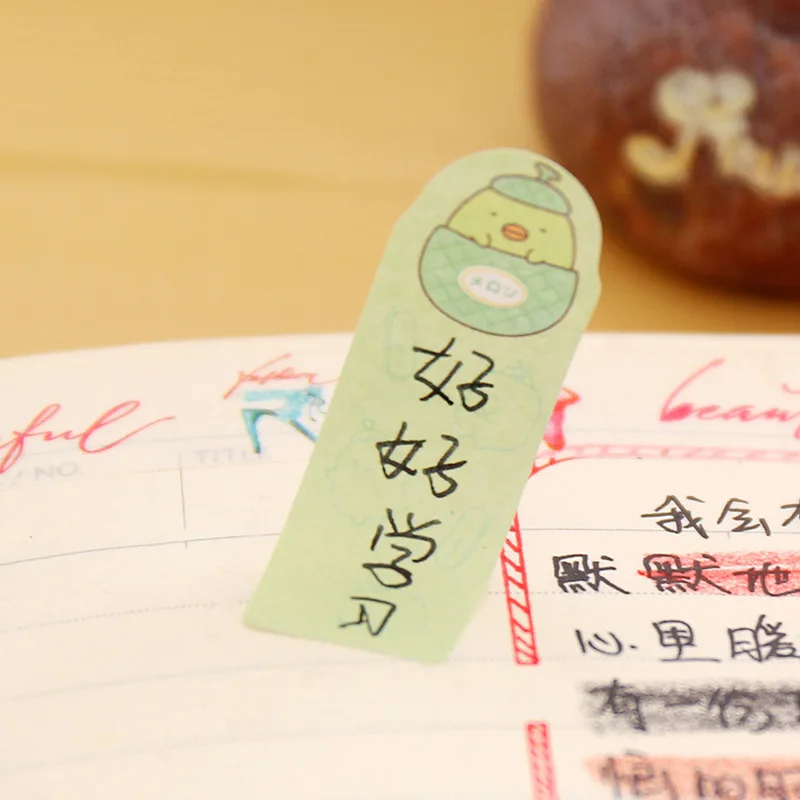 メロン
好
好
学
习
ful
/ NO.
TITLE
beau
我会
默默地
心里暖
有一份